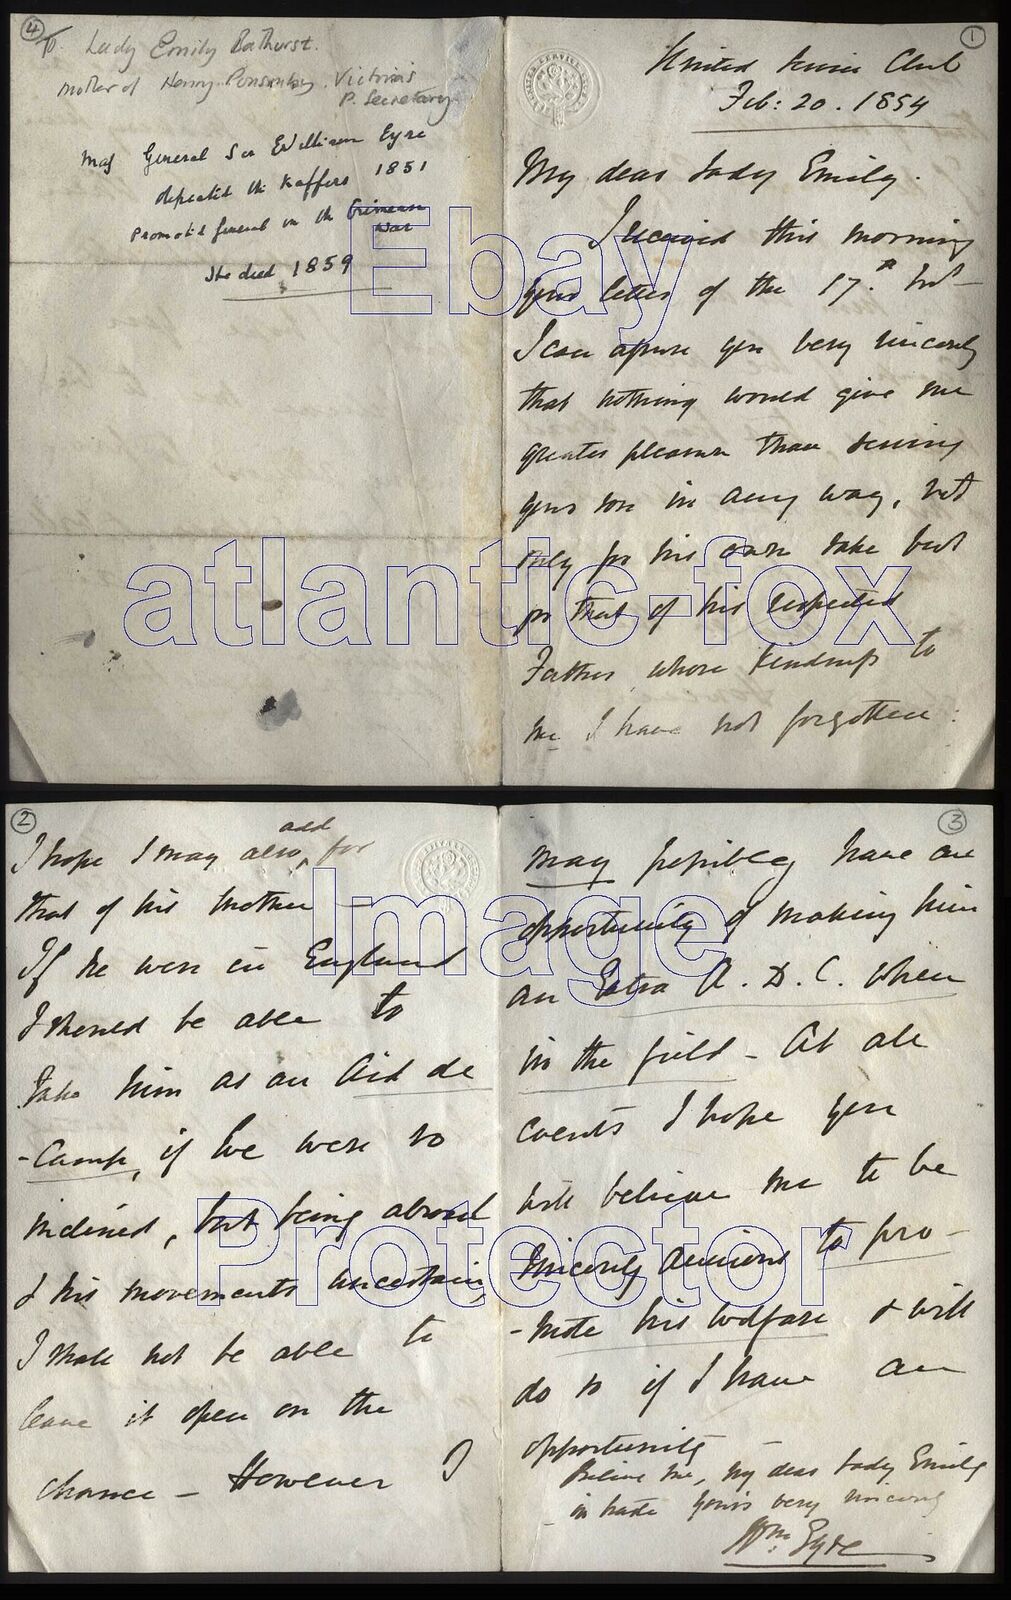 4
To. Lady Emily Bathurst.
mother of Henry Ponsonby. Victoria's
P. Secretary
Maj General Sir William Eyre
defeated the Kaffers 1851
Promoted general in the Crimean
War
He died 1859
1
United Service Club
Feb: 20. 1854
My dear Lady Emily.
I received this morning
your letter of the 17th Inst -
I can assure you very sincerely
that nothing would give me
greater pleasure than serving
your son in any way, not
only for his own sake but
for that of his respected
Father whose kindness to
me I have not forgotten:
2
I hope I may also, add for
that of his mother -
If he were in England
I should be able to
take him as an Aid de
-Camp, if he were so
inclined, but being abroad
& his movements uncertain,
I shall not be able to
leave it open on the
chance - However I
3
may possibly have an
opportunity of making him
an Extra A. D. C. when
in the field - At all
events I hope you
will believe me to be
sincerely anxious to pro-
-mote his welfare & will
do so if I have an
opportunity -
Believe me, my dear Lady Emily
in haste yours very sincerely
Wm. Eyre
Ebay
atlantic-fox
Image
Protector